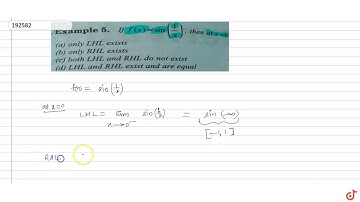 192582
Example 5. If f(x) = sin(1/x), then at x=0
(a) only LHL exists
(b) only RHL exists
(c) both LHL and RHL do not exist
(d) LHL and RHL exist and are equal
f(x) = sin(1/x)
at x=0
LHL = lim x→0⁻ sin(1/x) = sin(-∞)
[-1, 1]
RHL